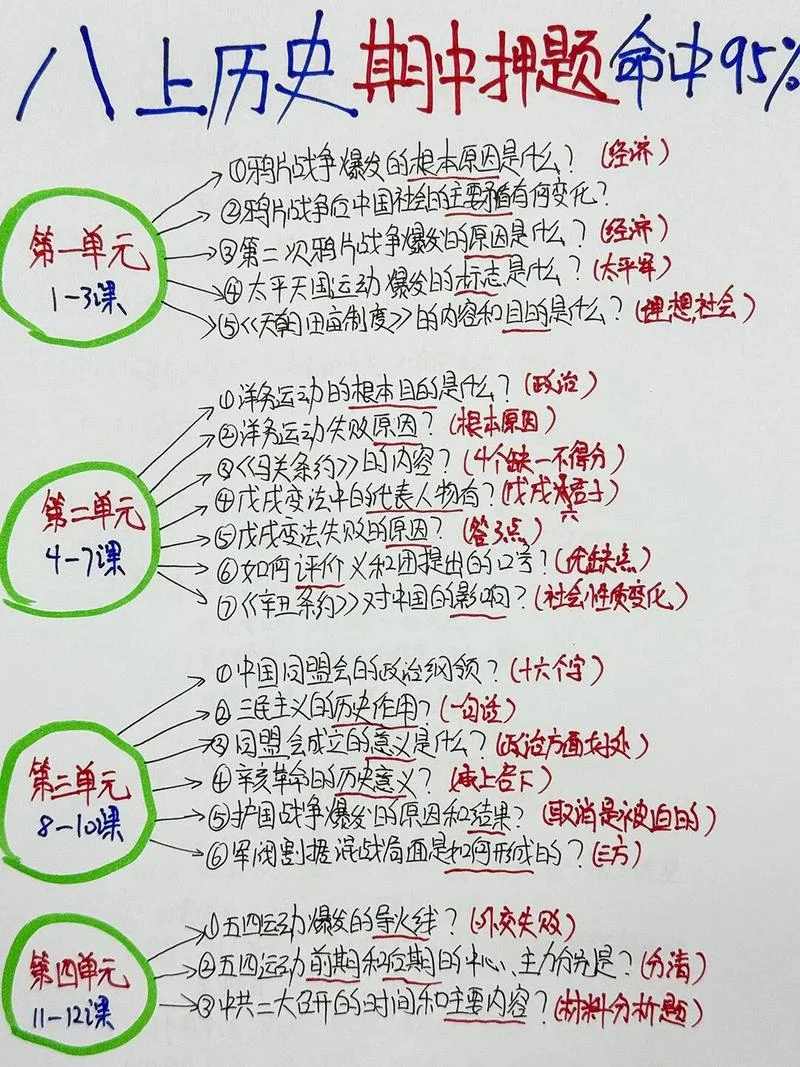 八上历史期中押题命中95%
第一单元
1-3课
①鸦片战争爆发的根本原因是什么?(经济)
②鸦片战争后中国社会的主要矛盾有何变化?
③第二次鸦片战争爆发的原因是什么?(经济)
④太平天国运动爆发的标志是什么?(太平军)
⑤《天朝田亩制度》的内容和目的是什么?(理想社会)
第二单元
4-7课
①洋务运动的根本目的是什么?(政治)
②洋务运动失败原因?(根本原因)
③《马关条约》的内容?(4个缺一不得分)
④戊戌变法中的代表人物有?(戊戌六君子)
⑤戊戌变法失败的原因?(答3点)
⑥如何评价义和团提出的口号?(优缺点)
⑦《辛丑条约》对中国的影响?(社会性质变化)
第三单元
8-10课
①中国同盟会的政治纲领?(十六个字)
②三民主义的历史作用?(一句话)
③同盟会成立的意义是什么?(政治方面好处)
④辛亥革命的历史意义?(承上启下)
⑤护国战争爆发的原因和结果?(取消是被迫的)
⑥军阀割据混战局面是如何形成的?(三方)
第四单元
11-12课
①五四运动爆发的导火线?(外交失败)
②五四运动前期和后期的中心、主力分别是?(分清)
③中共二大召开的时间和主要内容?(材料分析题)